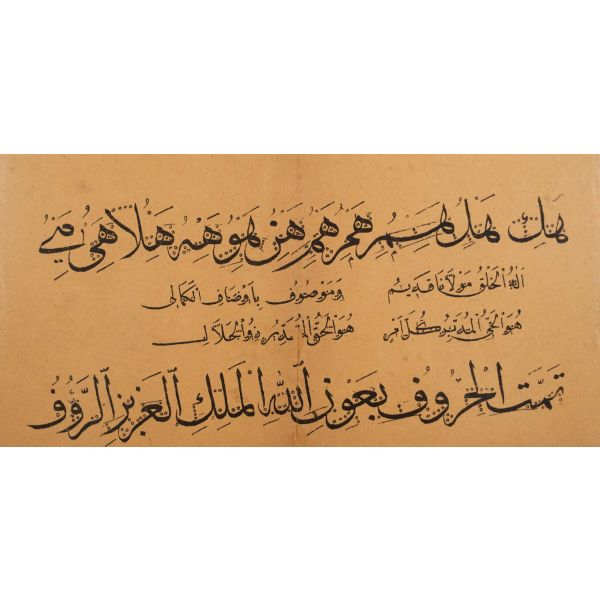 هك هل هم هم هن هو هه هلا هى
اله الخلق مولانا قديم وموصوف باوصاف الكمال
هو الحى المدبر كل امر هو الحق المقدر ذو الجلال
تمت الحروف بعون الله الملك العزيز الرؤف